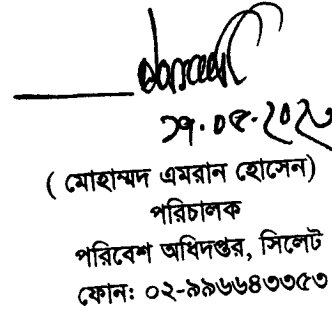 ( মোহাম্মদ এমরান হোসেন)
পরিচালক
পরিবেশ অধিদপ্তর, সিলেট
ফোন: ০২-৯৯৬৬৪৩৩৫৩